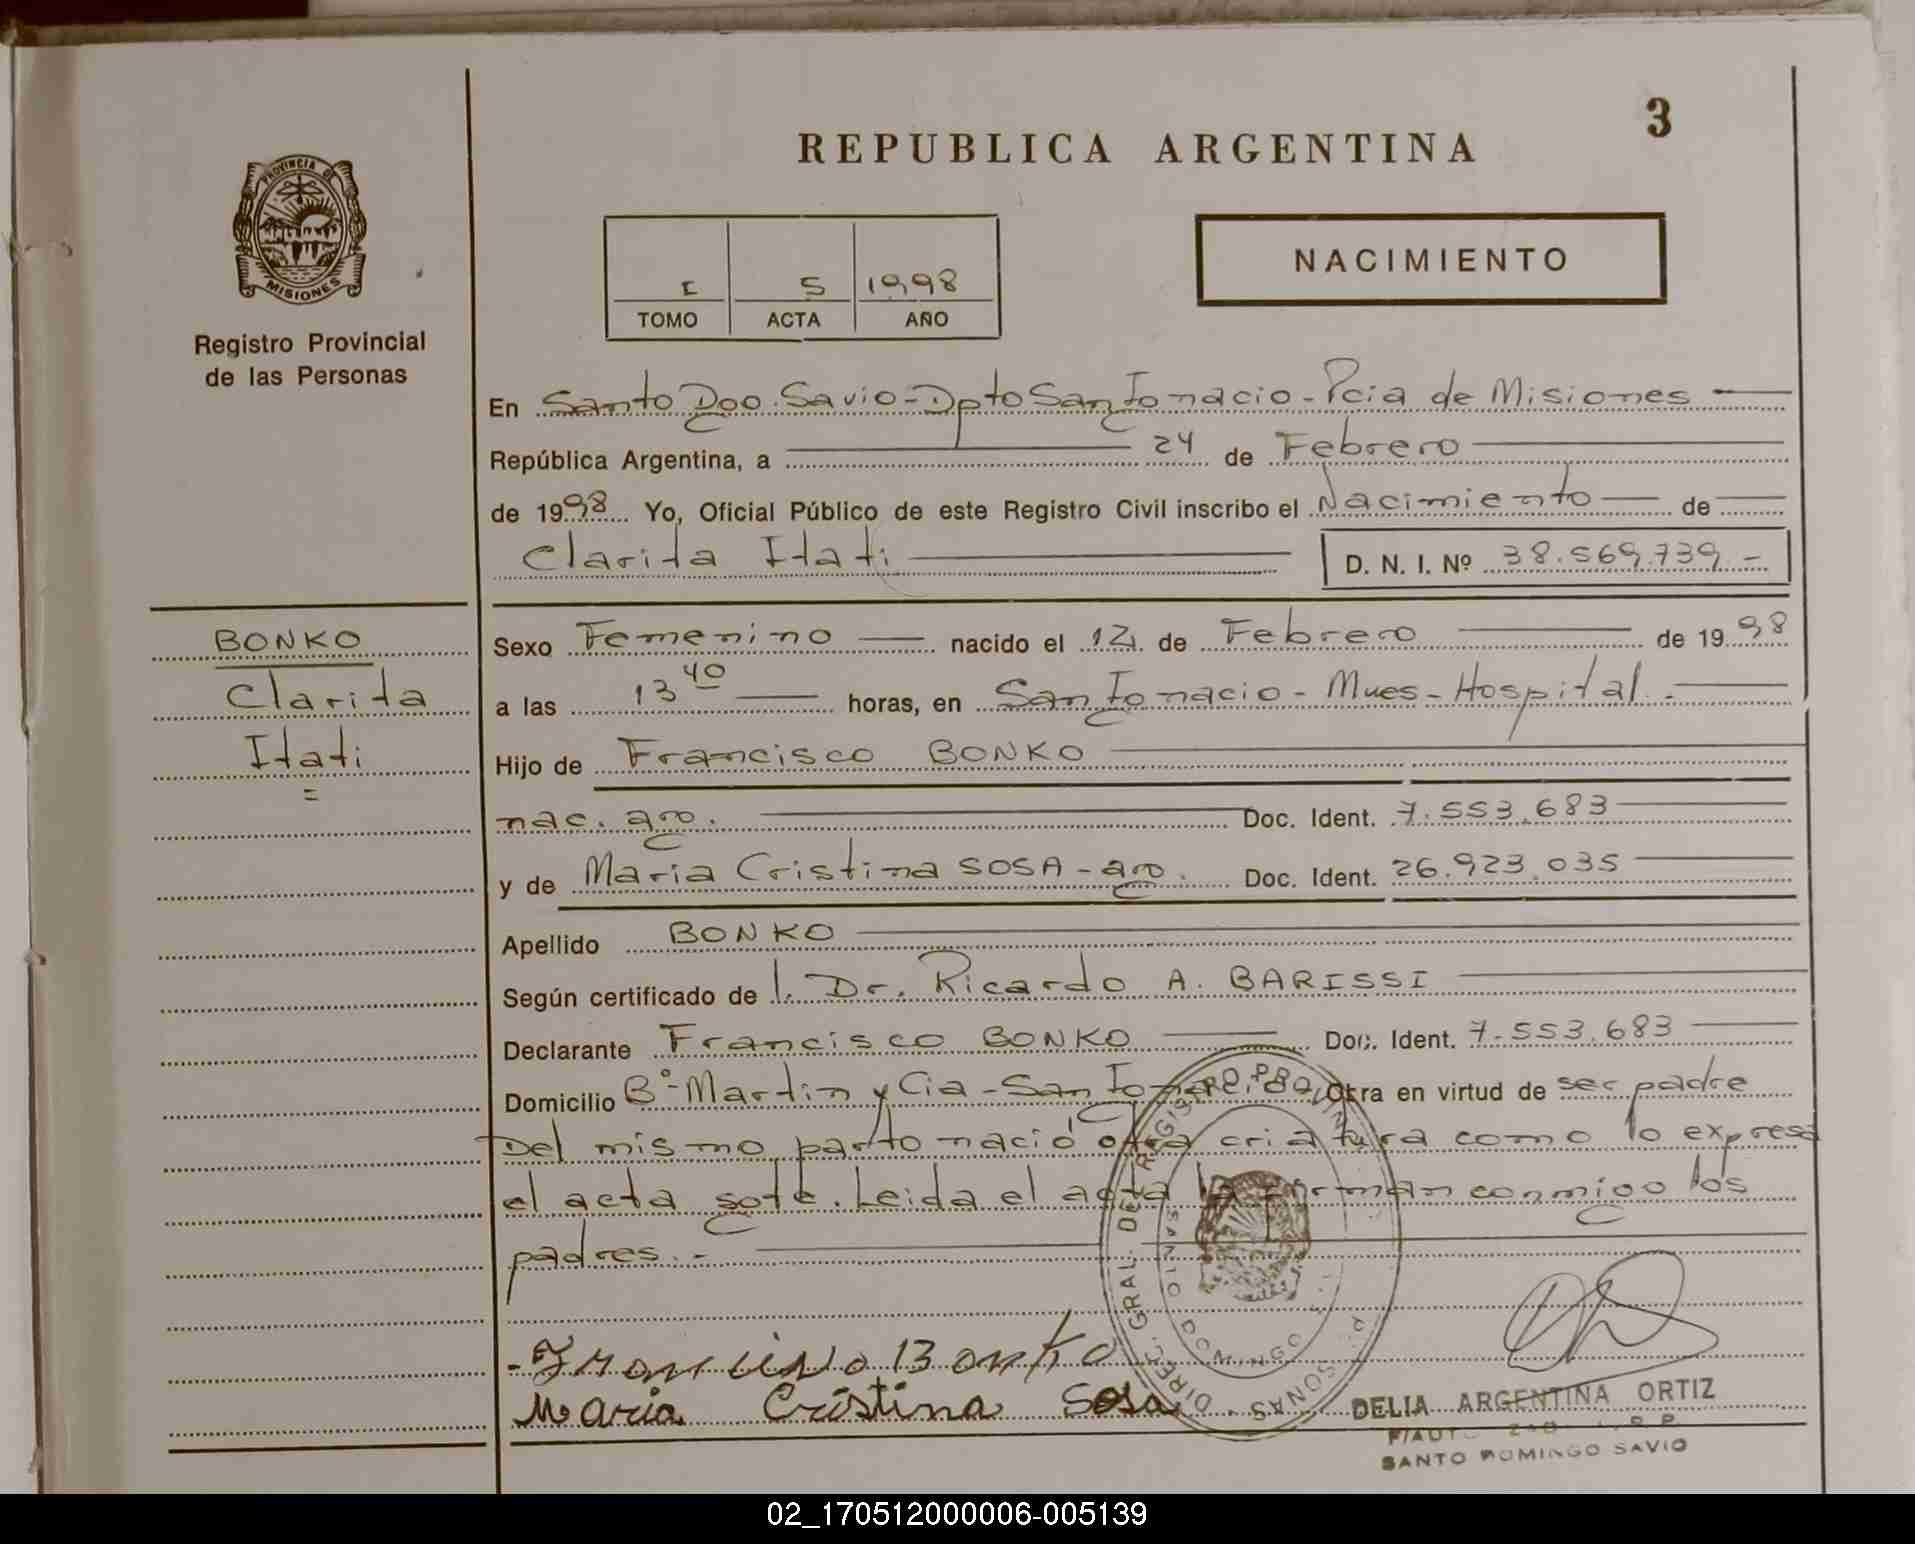 3
REPUBLICA ARGENTINA
PROVINCIA DE
MISIONES
Registro Provincial
de las Personas
NACIMIENTO
I 5 1998
TOMO ACTA AÑO
En Santo Dgo. Savio - Dpto San Ignacio - Pcia de Misiones
República Argentina, a 24 de Febrero
de 1998 Yo, Oficial Público de este Registro Civil inscribo el Nacimiento de
Clarita Itati D. N. I. Nº 38.569.739.-
BONKO
Clarita
Itati
=
Sexo Femenino nacido el 12 de Febrero de 1998
a las 13 40 horas, en San Ignacio - Mnes - Hospital.-
Hijo de Francisco BONKO
nac. arg. Doc. Ident. 7.553.683
y de Maria Cristina SOSA - arg. Doc. Ident. 26.923.035
Apellido BONKO
Según certificado de l. Dr. Ricardo A. BARISSI
Declarante Francisco BONKO Doc. Ident. 7.553.683
Domicilio Bº Martin y Cia - San Ignacio Obra en virtud de ser padre
Del mismo parto nació otra criatura como lo expresa
el acta sgte. Leida el acta la firman conmigo los
padres.-
Francisco Bonko
Maria Cristina Sosa
DIREC. GRAL. DEL REGISTRO PROVIN SONAS
SANTO DOMINGO
DELIA ARGENTINA ORTIZ
SANTO DOMINGO SAVIO
02_170512000006-005139